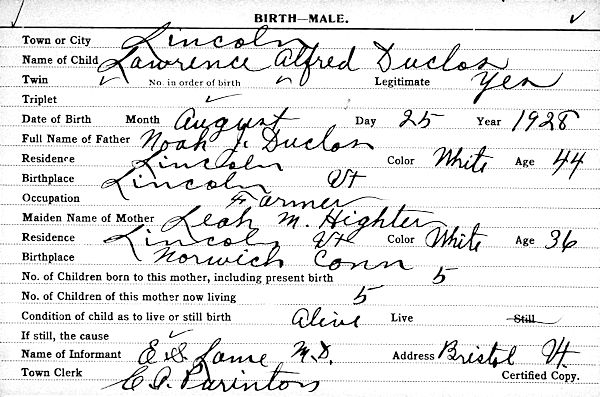 BIRTH—MALE.
Town or City Lincoln
Name of Child Lawrence Alfred Duclos
Twin No. in order of birth Legitimate Yes
Triplet
Date of Birth Month August Day 25 Year 1928
Full Name of Father Noah J. Duclos
Residence Lincoln Color White Age 44
Birthplace Lincoln Vt
Occupation Farmer
Maiden Name of Mother Leah M. Highter
Residence Lincoln Vt Color White Age 36
Birthplace Norwich Conn
No. of Children born to this mother, including present birth 5
No. of Children of this mother now living 5
Condition of child as to live or still birth Alive Live Still
If still, the cause
Name of Informant M.D. Address Bristol Vt.
Town Clerk C. A. Purinton Certified Copy.